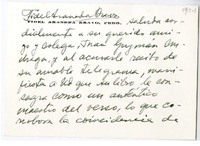 Fidel Araneda Bravo
FIDEL ARANEDA BRAVO, PBDO.
saluda cor-
dialmente a su querido ami-
go y colega, Juan Guzmán Cru-
chaga, y al acusarle recibo de
su amable telegrama, mani-
fiesta a Ud que su libro le con-
sagra como un auténtico
maestro del verso, lo que co-
rrobora la coincidencia de